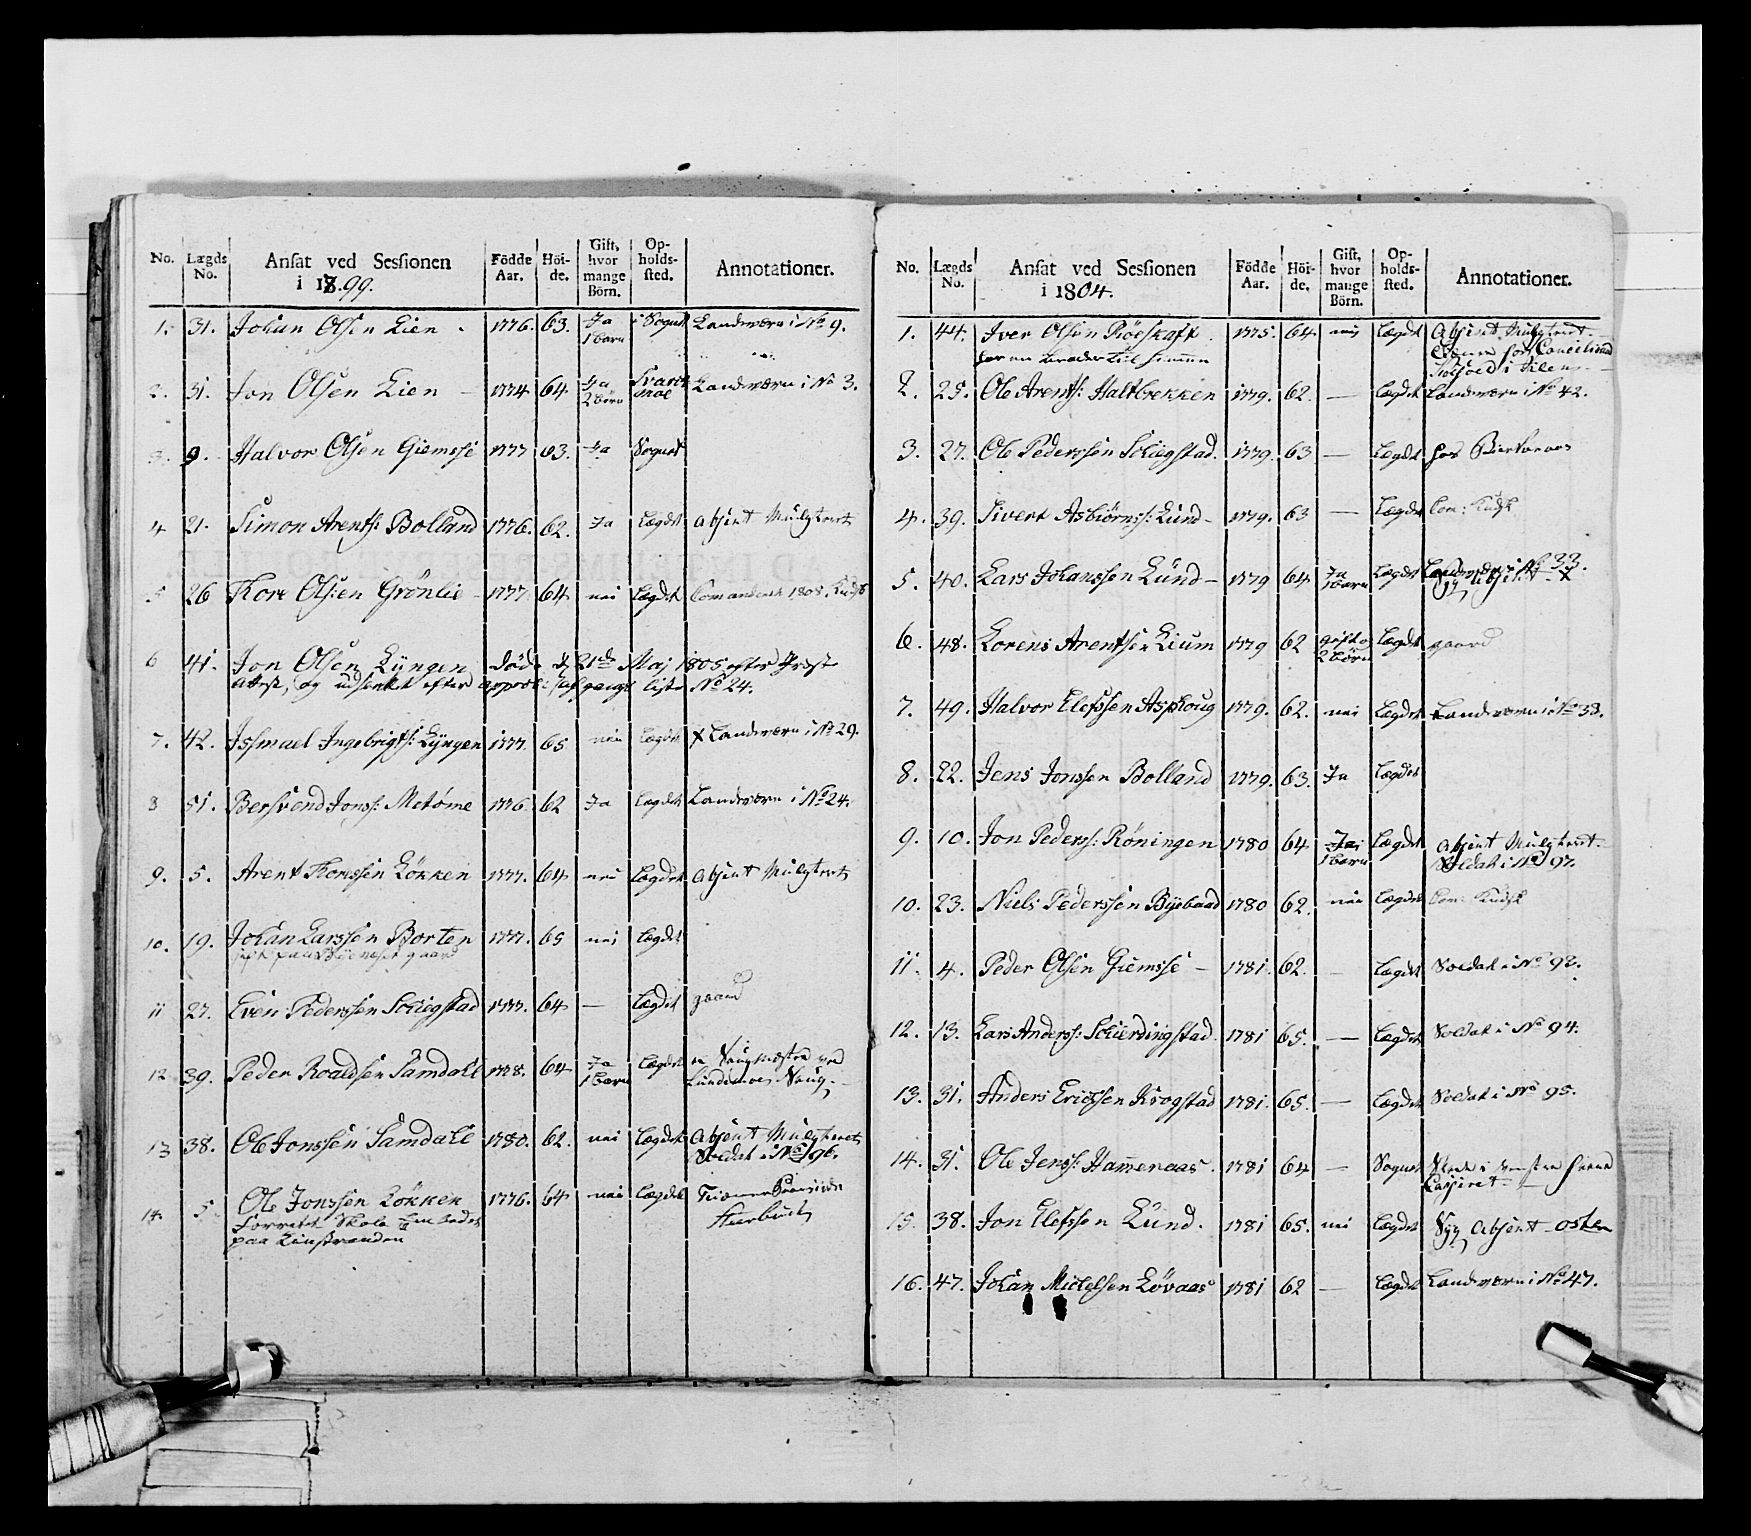 No. Lægds No. Ansat ved Sessionen i 1799. Födde Aar. Höide. Gift, hvor mange Börn. Opholdssted. Annotationer.
1. 31. Johan Olsen Lien - 1776. 63. Ja 1 barn i Sognet Landværn i No 9.
2. 31. Jon Olsen Lien - 1774 64 Ja 2 börn Landværn i No 3.
3. 9. Halvor Olsen Giemsse 1777 63. Ja Sognet
4 21. Simon Arents: Bolland 1776. 62. Ja Lægdet Absent
5 26 Thore Olsen Grönlie - 1777. 64 nei Lægdet 1808. Kudsk
6 41. Jon Olsen Lÿngen döde d 21de Maj 1805 efter Præste
Attest, og udsenkt efter liste No 24.
7. 42. Issmael Ingebrigts: Lÿngen 1777. 65 nei Lægdet X Landværn i No 29.
8 51. Bersvend Jonss: Metöme 1776. 62 Ja Lægdet Landværn i No 24.
9. 5. Arent Thomssen Lökken 1777. 64 nei Lægdet Absent
10. 19. Johan Larssen Borten 1777. 65 nei Lægdet
11 27. Even Pederssen Schiegstad 1777. 64 — Lægdet gaard
12 39. Peder Roaldsen Samdahl 1778. 64 Ja 1 barn Lægdet
13 38. Ole Jonssen Samdahl 1780. 62. nei Lægdet Absent
Soldat i No 96.
14. 5. Ole Jonssen Lökken 1776. 64 nei Lægdet
Forrettet Skole Embedet
paa
No. Lægds No. Ansat ved Sessionen i 1804. Födde Aar. Höide. Gift, hvor mange Börn. Opholdssted. Annotationer.
1. 44. Iver Olsen Röeskaft. 1775. 64 nei Lægdet Absent
2. 25. Ole Arents: Haltbrekken 1779. 62. — Lægdet Landværn i No 42.
3. 27. Ole Pederssen Schiegstad. 1779. 63 — Lægdet hos
4. 39. Sivert Asbiörnss: Lund - 1779. 63 — Lægdet Com: Kudsk
5. 40. Lars Johanssen Lund - 1779 64 Ja 1 barn Lægdet Landværn i No 33.
6. 48. Lorens Arentsen Lium 1779 62 gift og 2 börn Lægdet gaard
7. 49. Halvor Elefssen Asphoug 1779. 62. nei Lægdet Landværn i No 38.
8. 22. Jens Jonssen Bolland 1779. 63. Ja Lægdet
9. 10. Jon Pederss: Röningen 1780 64 1 barn Lægdet Absent
Soldat i No 97.
10. 23. Niels Pederssen Byebaad 1780 62. nei Lægdet Com: Kudsk
11. 4. Peder Olsen Giemsse - 1781. 62. — Lægdet Soldat i No 92.
12. 13. Lars Anderss: Schierdingstad. 1781 65. — Lægdet Soldat i No 94.
13. 31. Anders Ericksen Krogstad 1781. 65. — Lægdet Soldat i No 95.
14. 31. Ole Jenss: Hammeraas. 1781 64 — Sognet
15. 38. Jon Elefssen Lund. 1781 65. nei Lægdet Syg Absent
16. 47. Johan Michelsen Lövaas 1781 62 — Lægdet Landværn i No 47.